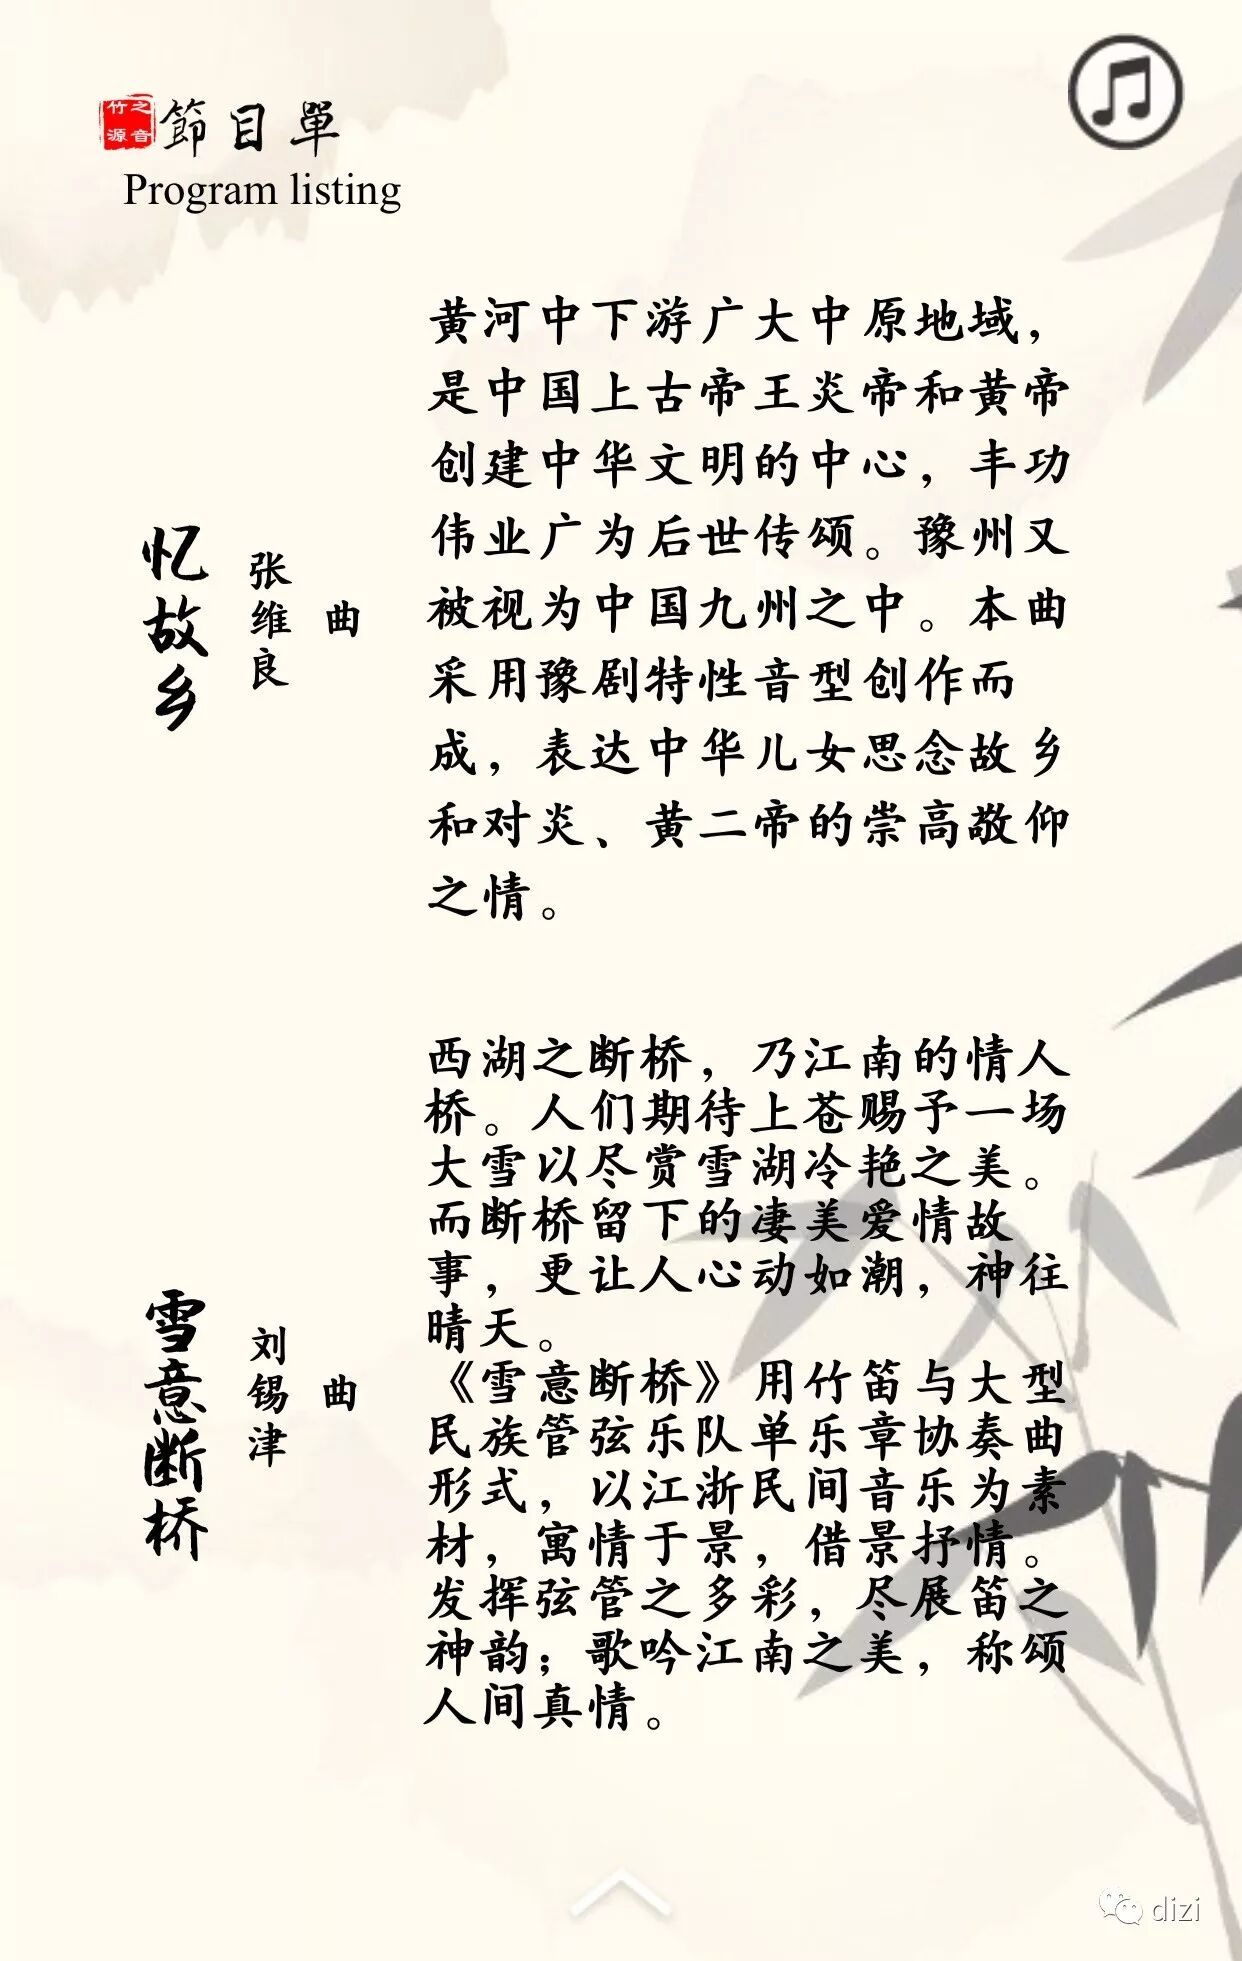 竹之
源音
節目單
Program listing
忆故乡
张维良
曲
黄河中下游广大中原地域，
是中国上古帝王炎帝和黄帝
创建中华文明的中心，丰功
伟业广为后世传颂。豫州又
被视为中国九州之中。本曲
采用豫剧特性音型创作而
成，表达中华儿女思念故乡
和对炎、黄二帝的崇高敬仰
之情。
雪意断桥
刘锡津
曲
西湖之断桥，乃江南的情人
桥。人们期待上苍赐予一场
大雪以尽赏雪湖冷艳之美。
而断桥留下的凄美爱情故
事，更让人心动如潮，神往
晴天。
《雪意断桥》用竹笛与大型
民族管弦乐队单乐章协奏曲
形式，以江浙民间音乐为素
材，寓情于景，借景抒情。
发挥弦管之多彩，尽展笛之
神韵；歌吟江南之美，称颂
人间真情。
dizi